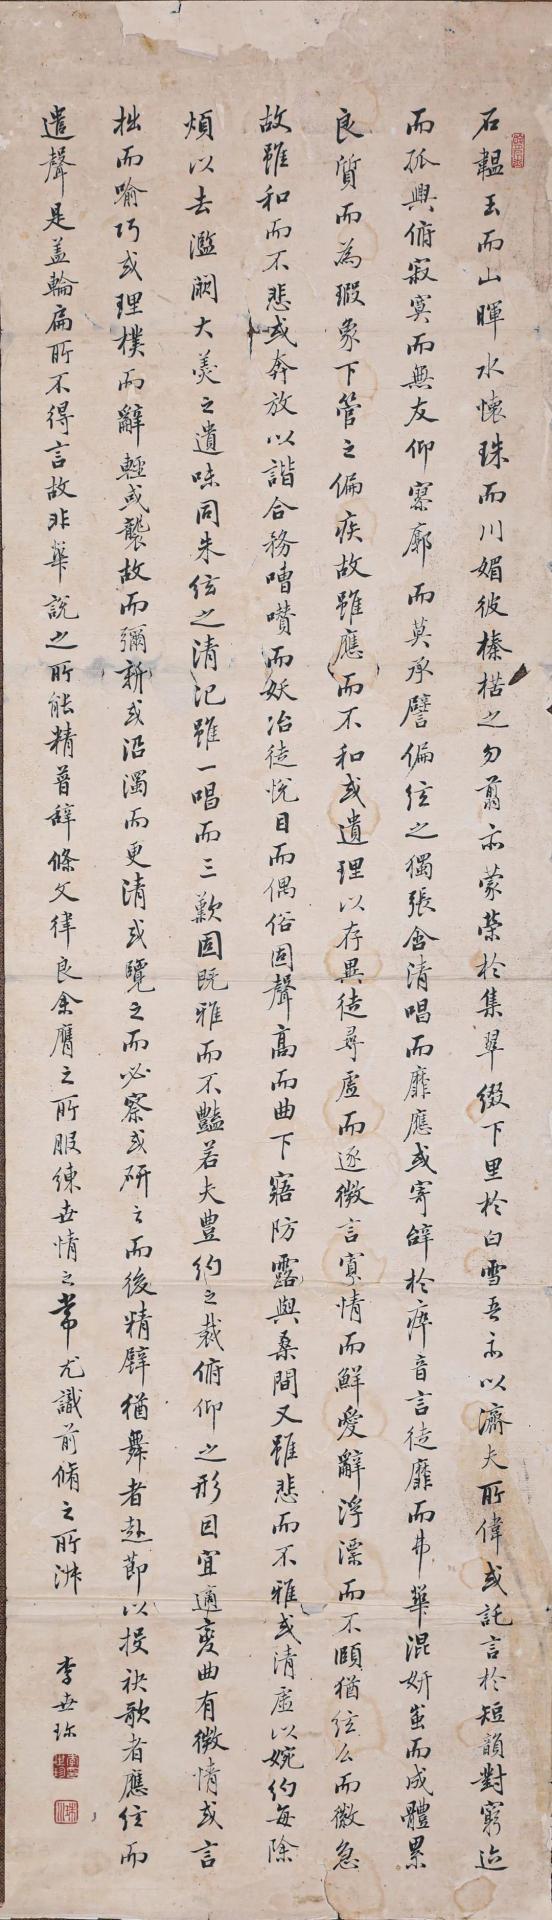 石韞玉而山暉水懷珠而川媚彼榛楛之勿翦亦蒙榮於集翠綴下里於白雪吾亦以濟夫所偉或託言於短韻對窮迹
而孤興俯寂寞而無友仰寥廓而莫承譬偏弦之獨張含清唱而靡應或寄辭於瘁音言徒靡而弗華混妍蚩而成體累
良質而為瑕象下管之偏疾故雖應而不和或遺理以存異徒尋虛而逐微言寡情而鮮愛辭浮漂而不歸猶弦么而徽急
故雖和而不悲或奔放以諧合務嘈囋而妖冶徒悅目而偶俗固聲高而曲下寤防露與桑間又雖悲而不雅或清虛以婉約每除
煩以去濫闕大羹之遺味同朱弦之清汜雖一唱而三歎固既雅而不豔若夫豐約之裁俯仰之形因宜適變曲有微情或言
拙而喻巧或理樸而辭輕或襲故而彌新或沿濁而更清或覽之而必察或研之而後精譬猶舞者赴節以投袂歌者應弦而
遣聲是盖輪扁所不得言故非華說之所能精普辞條文律良余膺之所服練世情之常尤識前脩之所淑
李世珍